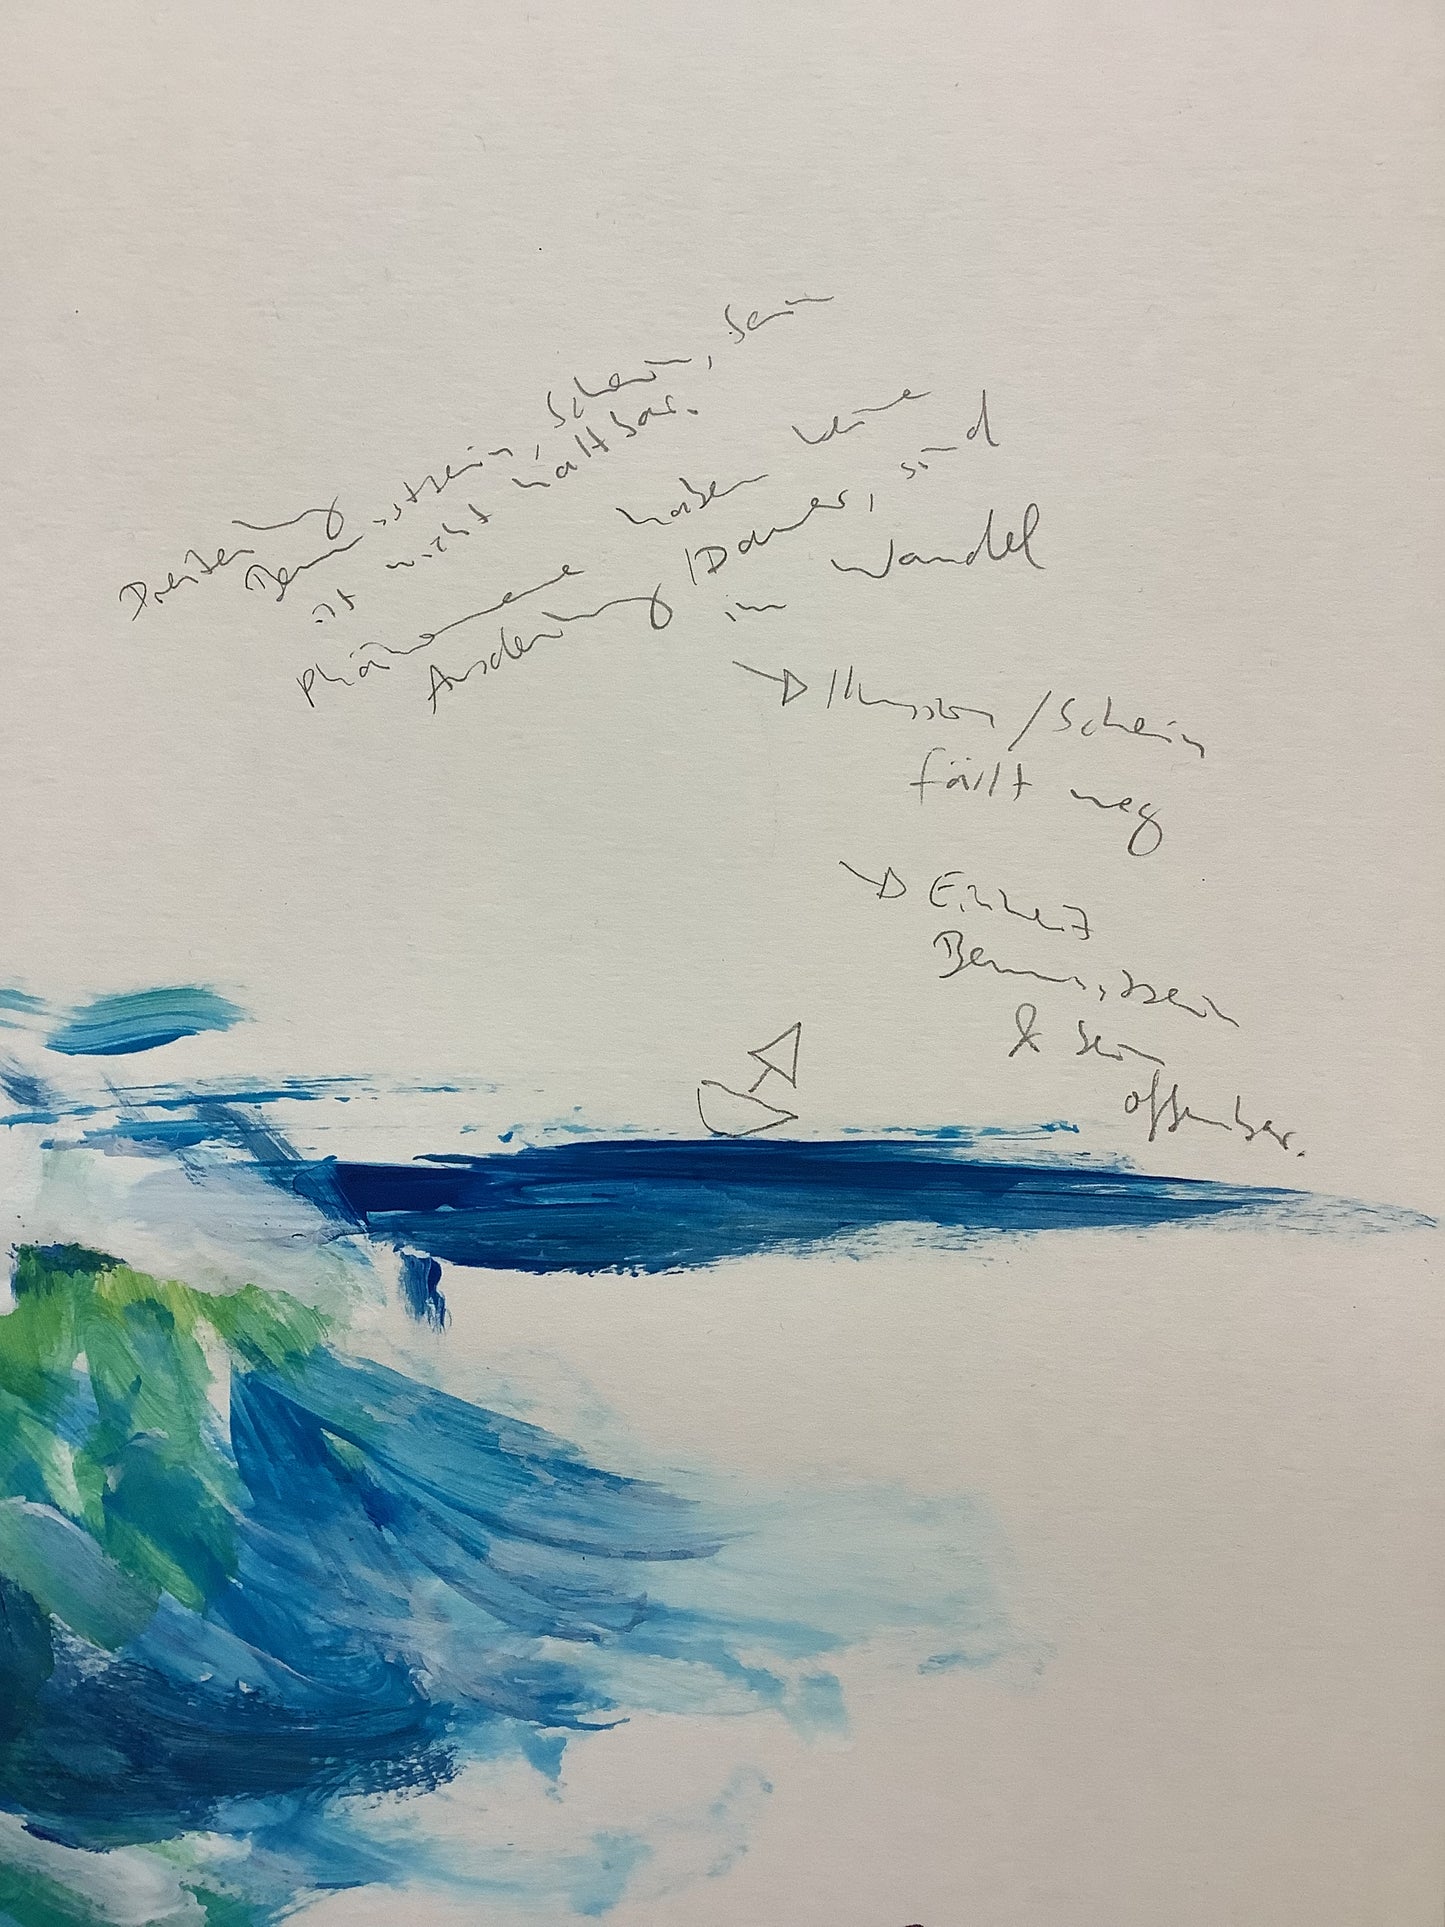 Dreiteilung
Bewusstsein, Schein, Sein
ist nicht haltbar.
Phänomene haben keine
Ausdehnung / Dauer, sind
im Wandel
→ Illusion / Schein
fällt weg
→ Einheit
Bewusstsein
& Sein
offenbar.